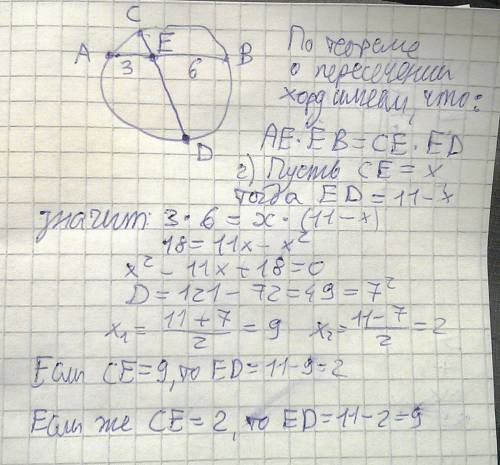 C
A E B
3 6
D
По теореме
о пересечении
хорд имеем, что:
AE · EB = CE · ED
г) Пусть CE = x
тогда ED = 11 - x
значит: 3 · 6 = x · (11 - x)
18 = 11x - x²
x² - 11x + 18 = 0
D = 121 - 72 = 49 = 7²
x₁ = (11 + 7)/2 = 9 x₂ = (11 - 7)/2 = 2
Если CE = 9, то ED = 11 - 9 = 2
Если же CE = 2, то ED = 11 - 2 = 9